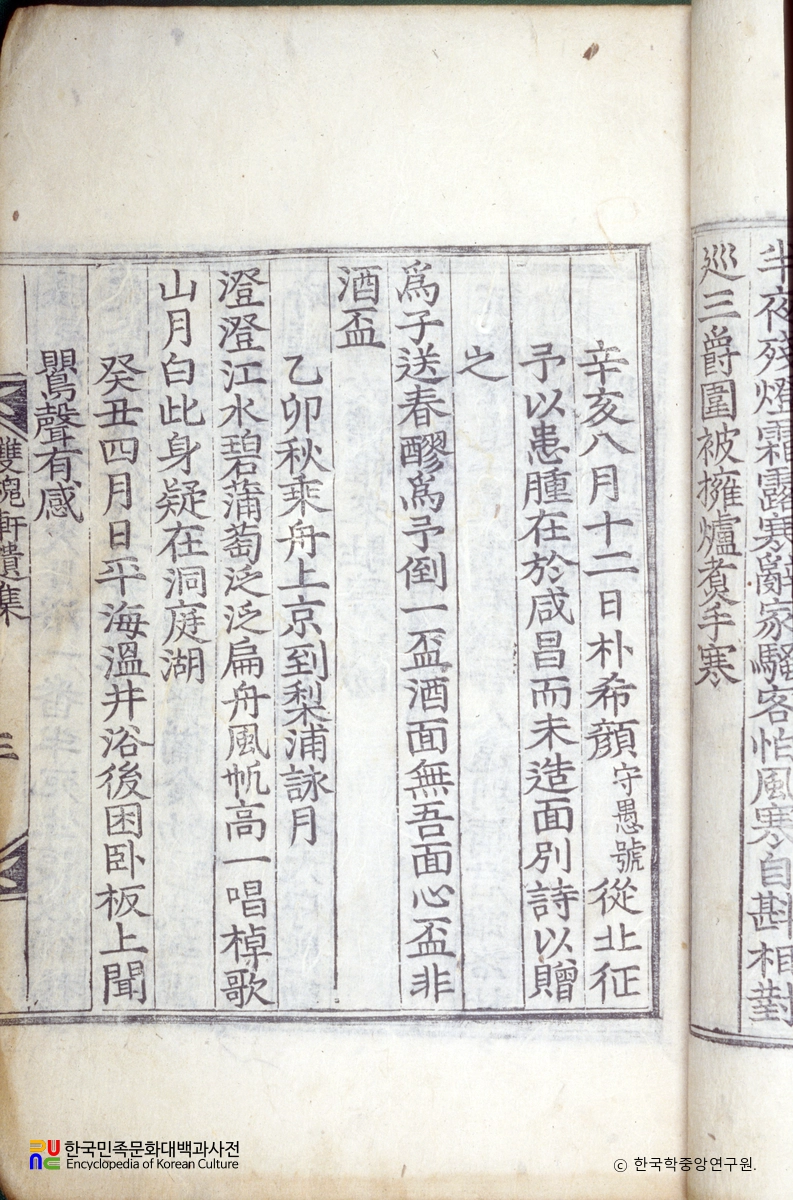 半夜殘燈霜露寒辭家騷客怕風寒自斟相對
巡三爵圍被擁爐煮手寒
辛亥八月十二日朴希顔守愚號從北征
予以患腫在於咸昌而未造面別詩以贈
之
爲子送春醪爲予倒一盃酒面無吾面心盃非
酒盃
乙卯秋乘舟上京到梨浦詠月
澄澄江水碧蒲萄泛泛扁舟風帆高一唱棹歌
山月白此身疑在洞庭湖
癸丑四月日平海溫井浴後困卧板上聞
鸎聲有感
雙槐軒遺集
三
한국민족문화대백과사전
Encyclopedia of Korean Culture
ⓒ 한국학중앙연구원.